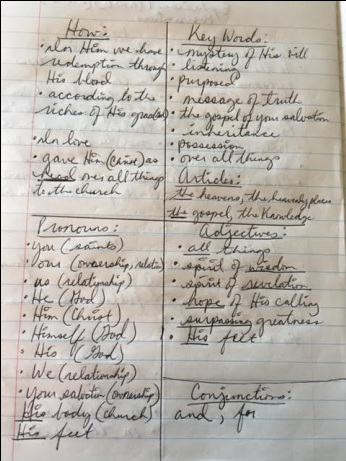 How:
• In Him we have
redemption through
His blood
• according to the
riches of His grace
• In love
• gave Him (Christ) as
head over all things
to the church
Key Words:
• mystery of His will
• listening
• purposed
• message of truth
• the gospel of your salvation
• inheritance
• possession
• over all things
Articles:
the heavens, the heavenly places
the gospel, the Knowledge
Pronouns:
• You (saints)
• our (ownership, relation)
• us (relationship)
• He (God)
• Him (Christ)
• Himself (God)
• His (God)
• We (relationship)
• Your salvation (ownership)
His body (church)
His feet
Adjectives:
• all things
• spirit of wisdom
• spirit of revelation
• hope of His calling
• surpassing greatness
• His feet
Conjunctions:
and, for